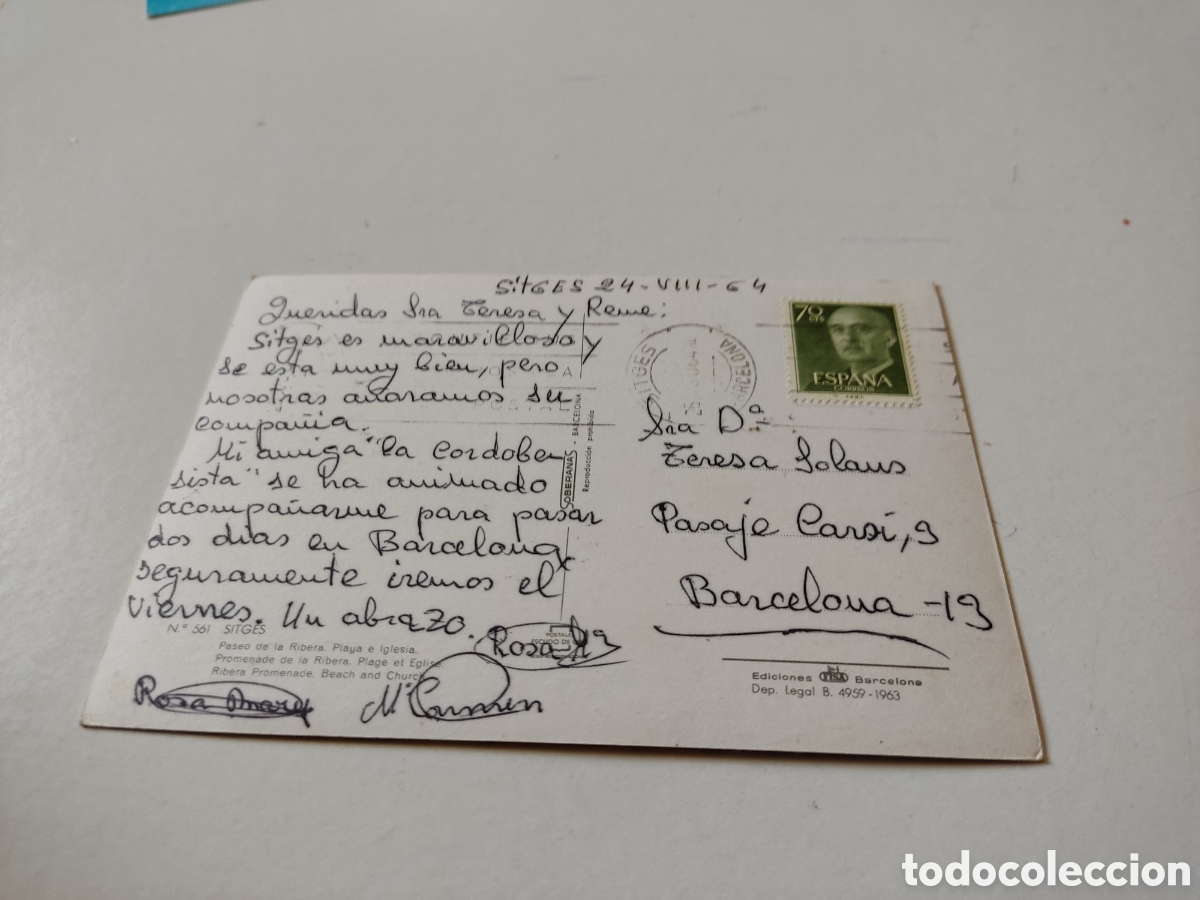 SitGES 24-VIII-64
Queridas Sra Teresa y Reme:
Sitges es maravilloso y
se esta muy bien, pero
nosotras añoramos su
compañia.
Mi amiga "la Cordobe
sista" se ha animado
acompañarme para pasar
dos dias en Barcelona
seguramente iremos el
viernes. Un abrazo.
Rosa Mª
Rosa
Mª Carmen
Nº 561 SITGES
Paseo de la Ribera. Playa e Iglesia.
Promenade de la Ribera. Plage et Eglise.
Ribera Promenade. Beach and Church
SOBERANAS - BARCELONA
Reproducción prohibida
POSTALES
ESCUDO DE
SITGES
BARCELONA
70 CTS
ESPAÑA
CORREOS
Sra Dª
Teresa Solans
Pasaje Carsi, 9
Barcelona -13
Ediciones FISA Barcelona
Dep. Legal B. 4959-1963
todocoleccion